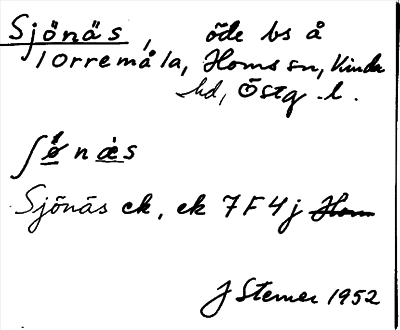 Sjönäs, öde bs å
Torremåla, Homs sn, Kinda
hd, Östg. l.
ʃø̀nǽs
Sjönäs ek, ek 7F4j Hom
J Stemer 1952